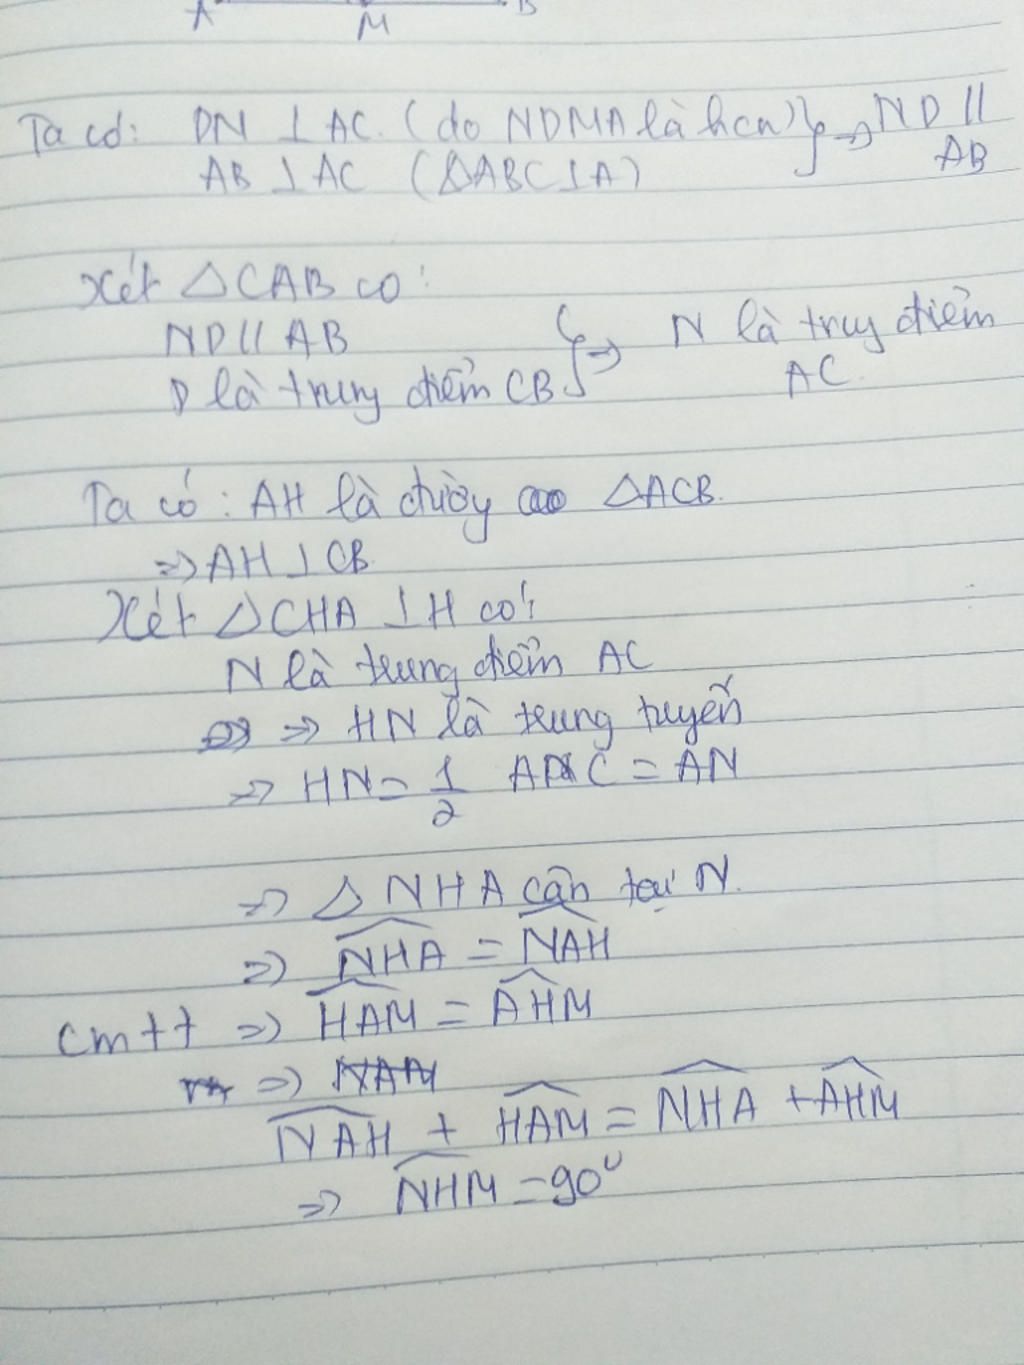 A M B
Ta có: DN ⊥ AC. (do NDMA là hcn) } => ND //
AB ⊥ AC (△ABC ⊥ A) AB
Xét △CAB có:
ND // AB } => N là trug điểm
D là trung điểm CB AC.
Ta có: AH là đường cao △ACB.
=> AH ⊥ CB
Xét △CHA ⊥ H có:
N là trung điểm AC
=> HN là trung tuyến
=> HN = 1/2 AC = AN
=> △ NHA cân tại N.
=> ^NHA = ^NAH
cmtt => ^HAM = ^AHM
=> NAM
^NAH + ^HAM = ^NHA + ^AHM
=> ^NHM = 90°